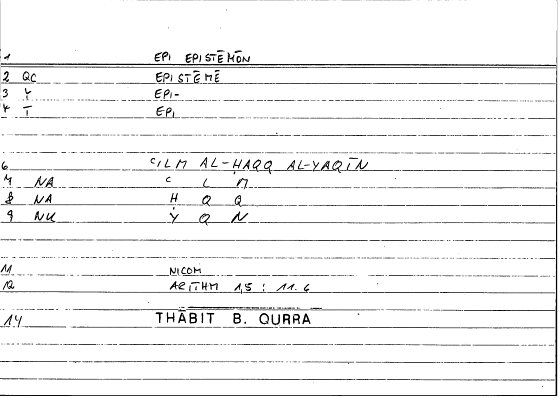 1 EPI EPISTĒMŌN
2 QC EPISTĒMĒ
3 Y EPI-
4 T EPI
6 ʿILM AL-ḤAQQ AL-YAQĪN
7 NA ʿ L M
8 NA Ḥ Q Q
9 NU Y Q N
11 NICOM
12 ARITHM 1,5 : 11.6
14 THĀBIT B. QURRA